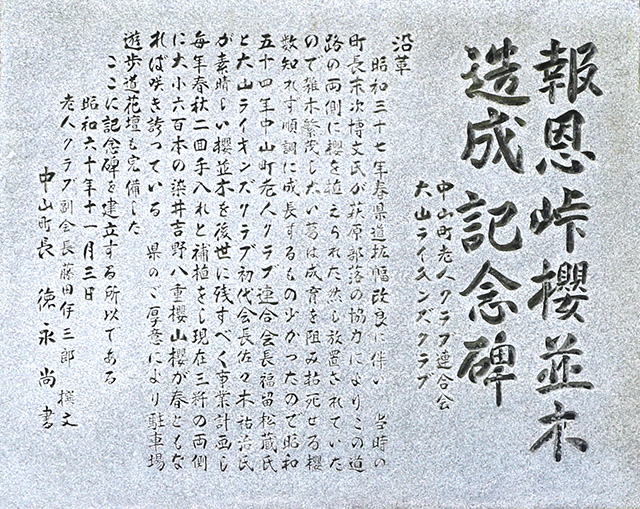 報恩峠櫻並木
造成記念碑
中山町老人クラブ連合会
大山ライオンズクラブ
沿革
昭和三十七年春県道拡幅改良に伴い 当時の
町長末次博文氏が萩原部落の協力によりこの道
路の両側に櫻を植えられた然し放置されていた
ので雑木繁茂し大い葛は成育を阻み枯死せる櫻
数知れず順調に成長するもの少かったので昭和
五十四年中山町老人クラブ連合会長福留松蔵氏
と大山ライオンズクラブ初代会長佐々木祐治氏
が素晴しい櫻並木を後世に残すべく事業計画し
毎年春秋二回手入れと補植をし現在三粁の両側
に大小六百本の染井吉野八重櫻山櫻が春ともな
れば咲き誇っている 県のご厚意により駐車場
遊歩道花壇も完備した
ここに記念碑を建立する所以である
昭和六十年十一月三日
老人クラブ副会長藤田伊三郎 撰文
中山町長 徳永尚 書